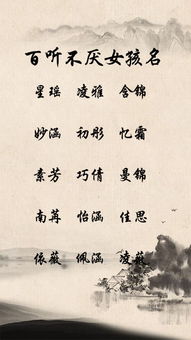 百听不厌女孩名
星瑶 凌雅 含锦
妙涵 初彤 忆霜
素芳 巧倩 曼锦
南苒 怡涵 佳思
依薇 佩涵 凌薇